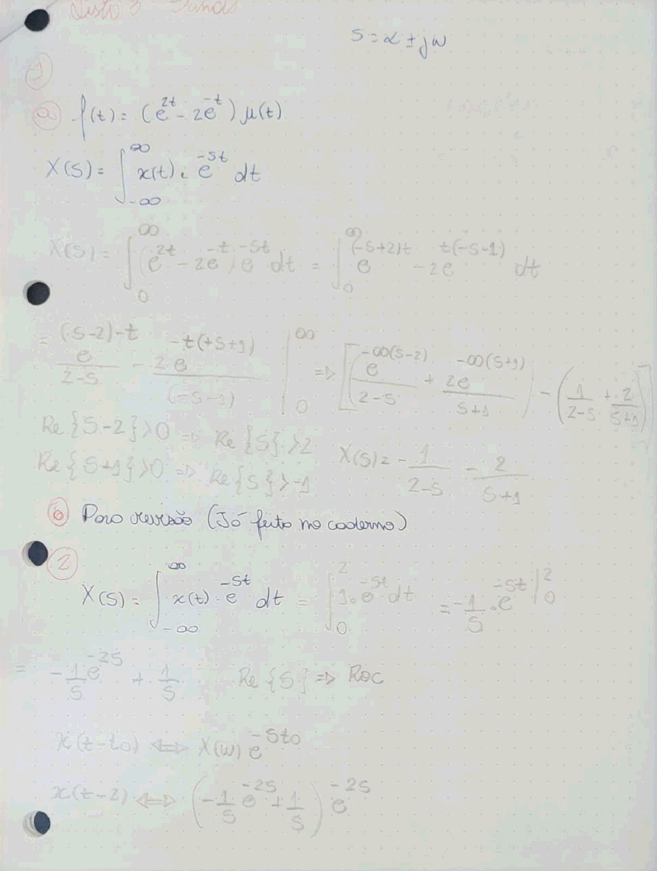 Lista 3
S = α ± jω
1
a) f(t) = (e^{2t} - 2e^{-t}) μ(t)
X(S) = ∫_{-∞}^{∞} x(t) . e^{-St} dt
X(S) = ∫_{0}^{∞} (e^{2t} - 2e^{-t}) e^{-St} dt = ∫_{0}^{∞} e^{(-S+2)t} - 2e^{t(-S-1)} dt
= e^{(S-2)-t}/(2-S) - 2e^{-t(+S+1)}/(-S-1) |_{0}^{∞} => [(e^{-∞(S-2)}/(2-S) + 2e^{-∞(S+1)}/(S+1)) - (1/(2-S) + 2/(S+1))]
Re{S-2}>0 => Re{S}>2
Re{S+1}>0 => Re{S}>-1
X(S) = - 1/(2-S) - 2/(S+1)
b) Para revisão (Já feito no caderno)
2
X(S) = ∫_{-∞}^{∞} x(t) . e^{-St} dt = ∫_{0}^{2} 1 . e^{-St} dt = -1/S . e^{-St} |_{0}^{2}
= -1/S e^{-2S} + 1/S Re{S} => Roc
x(t-t0) <=> X(ω) e^{-St0}
x(t-2) <=> (-1/S e^{-2S} + 1/S) e^{-2S}